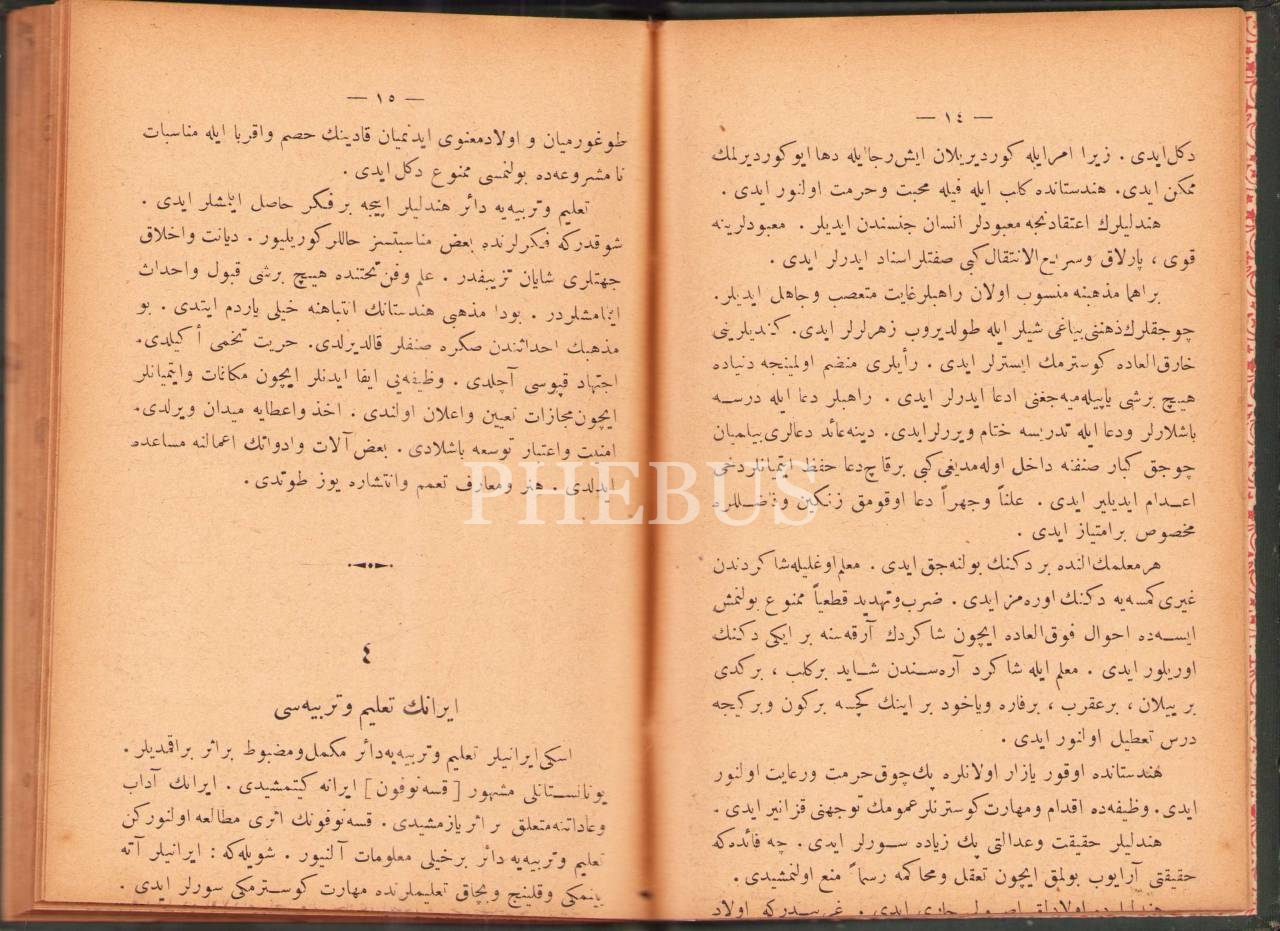 — ١٤ —
دكل ايدى . زيرا امر ايله كورديريلان ايش رجا ايله دها ايو كورديرلمك
ممكن ايدى. هندستانده كلب ايله فيله محبت وحرمت اولنور ايدى .
هنديليرك اعتقادنجه معبودلر انسان جنسندن ايديلر . معبودلرينه
قوى ، پارلاق وسريع الانتقال كبى صفتلر اسناد ايدرلر ايدى .
براهما مذهبنه منسوب اولان راهبلر غايت متعصب وجاهل ايديلر.
چوجقلرك ذهننى بياغى شيلر ايله طولديروب زهرلرلر ايدى. كنديلرينى
خارق العاده كوسترمك ايسترلر ايدى . رأيلرى منضم اولمينجه دنياده
هيچ برشى ياپيله ميه جغنى ادعا ايدرلر ايدى . راهبلر دعا ايله درسه
باشلارلر ودعا ايله تدريسه ختام ويررلر ايدى. دينه عائد دعالرى بيلميان
چوجق كبار صنفنه داخل اوله مديغى كبى برقاچ دعا حفظ ايتميانلر دخى
اعدام ايديلير ايدى . علناً وجهراً دعا اوقومق زنكين وفاضللره
مخصوص بر امتياز ايدى .
هر معلمك النده بر دكنك بولنه جق ايدى . معلم اوغليله شاكردندن
غيرى كمسه يه دكنك اوره مز ايدى . ضرب وتهديد قطعياً ممنوع بولنمش
ايسه ده احوال فوق العاده ايچون شاكردك آرقه سنه بر ايكى دكنك
اوريلور ايدى . معلم ايله شاكرد آره سندن شايد بركلب ، بركدى
بر ييلان ، برعقرب ، برفاره وياخود بر اينك كچسه بركون وبركيجه
درس تعطيل اولنور ايدى .
هندستانده اوقور يازار اولانلره پك چوق حرمت ورعايت اولنور
ايدى. وظيفه ده اقدام ومهارت كوسترنلر عمومك توجهنى قزانير ايدى .
هنديلر حقيقت وعدالتى پك زياده سورلر ايدى . چه فائده كه
حقيقتى آرايوب بولمق ايچون تعقل ومحاكمه رسماً منع اولنمشيدى .
— ١٥ —
طوغورميان و اولاد معنوى ايدنميان قادينك حصم واقربا ايله مناسبات
نامشروعه ده بولنمسى ممنوع دكل ايدى .
تعليم وتربيه يه دائر هنديلر اييجه بر فكر حاصل ايتمشلر ايدى .
شو قدركه فكرلرنده بعض مناسبتسز حاللر كوريليور . ديانت واخلاق
جهتلرى شايان تزييفدر . علم وفن تحتنده هيچ برشى قبول واحداث
ايتمامشلردر . بودا مذهبى هندستانك انتباهنه خيلى ياردم ايتدى . بو
مذهبك احداثندن صكره صنفلر قالديرلدى. حريت تخمى أكيلدى.
اجتهاد قپوسى آچلدى . وظيفه يى ايفا ايدنلر ايچون مكافات وايتميانلر
ايچون مجازات تعيين واعلان اولندى . اخذ واعطايه ميدان ويرلدى.
امنيت واعتبار توسعه باشلادى . بعض آلات وادواتك اعمالنه مساعده
ايدلدى . هنر ومعارف تعمم وانتشاره يوز طوتدى .
٤
ايرانك تعليم وتربيه سى
اسكى ايرانيلر تعليم وتربيه يه دائر مكمل ومضبوط بر اثر براقمديلر .
يونانستانلى مشهور [ قسه نوفون ] ايرانه كيتمشيدى . ايرانك آداب
وعاداتنه متعلق بر اثر يازمشيدى . قسه نوفونك اثرى مطالعه اولنوركن
تعليم وتربيه يه دائر برخيلى معلومات آلنيور . شويله كه : ايرانيلر آته
بينمكى وقلينج وبچاق تعليملرنده مهارت كوسترمكى سورلر ايدى .
PHEBUS